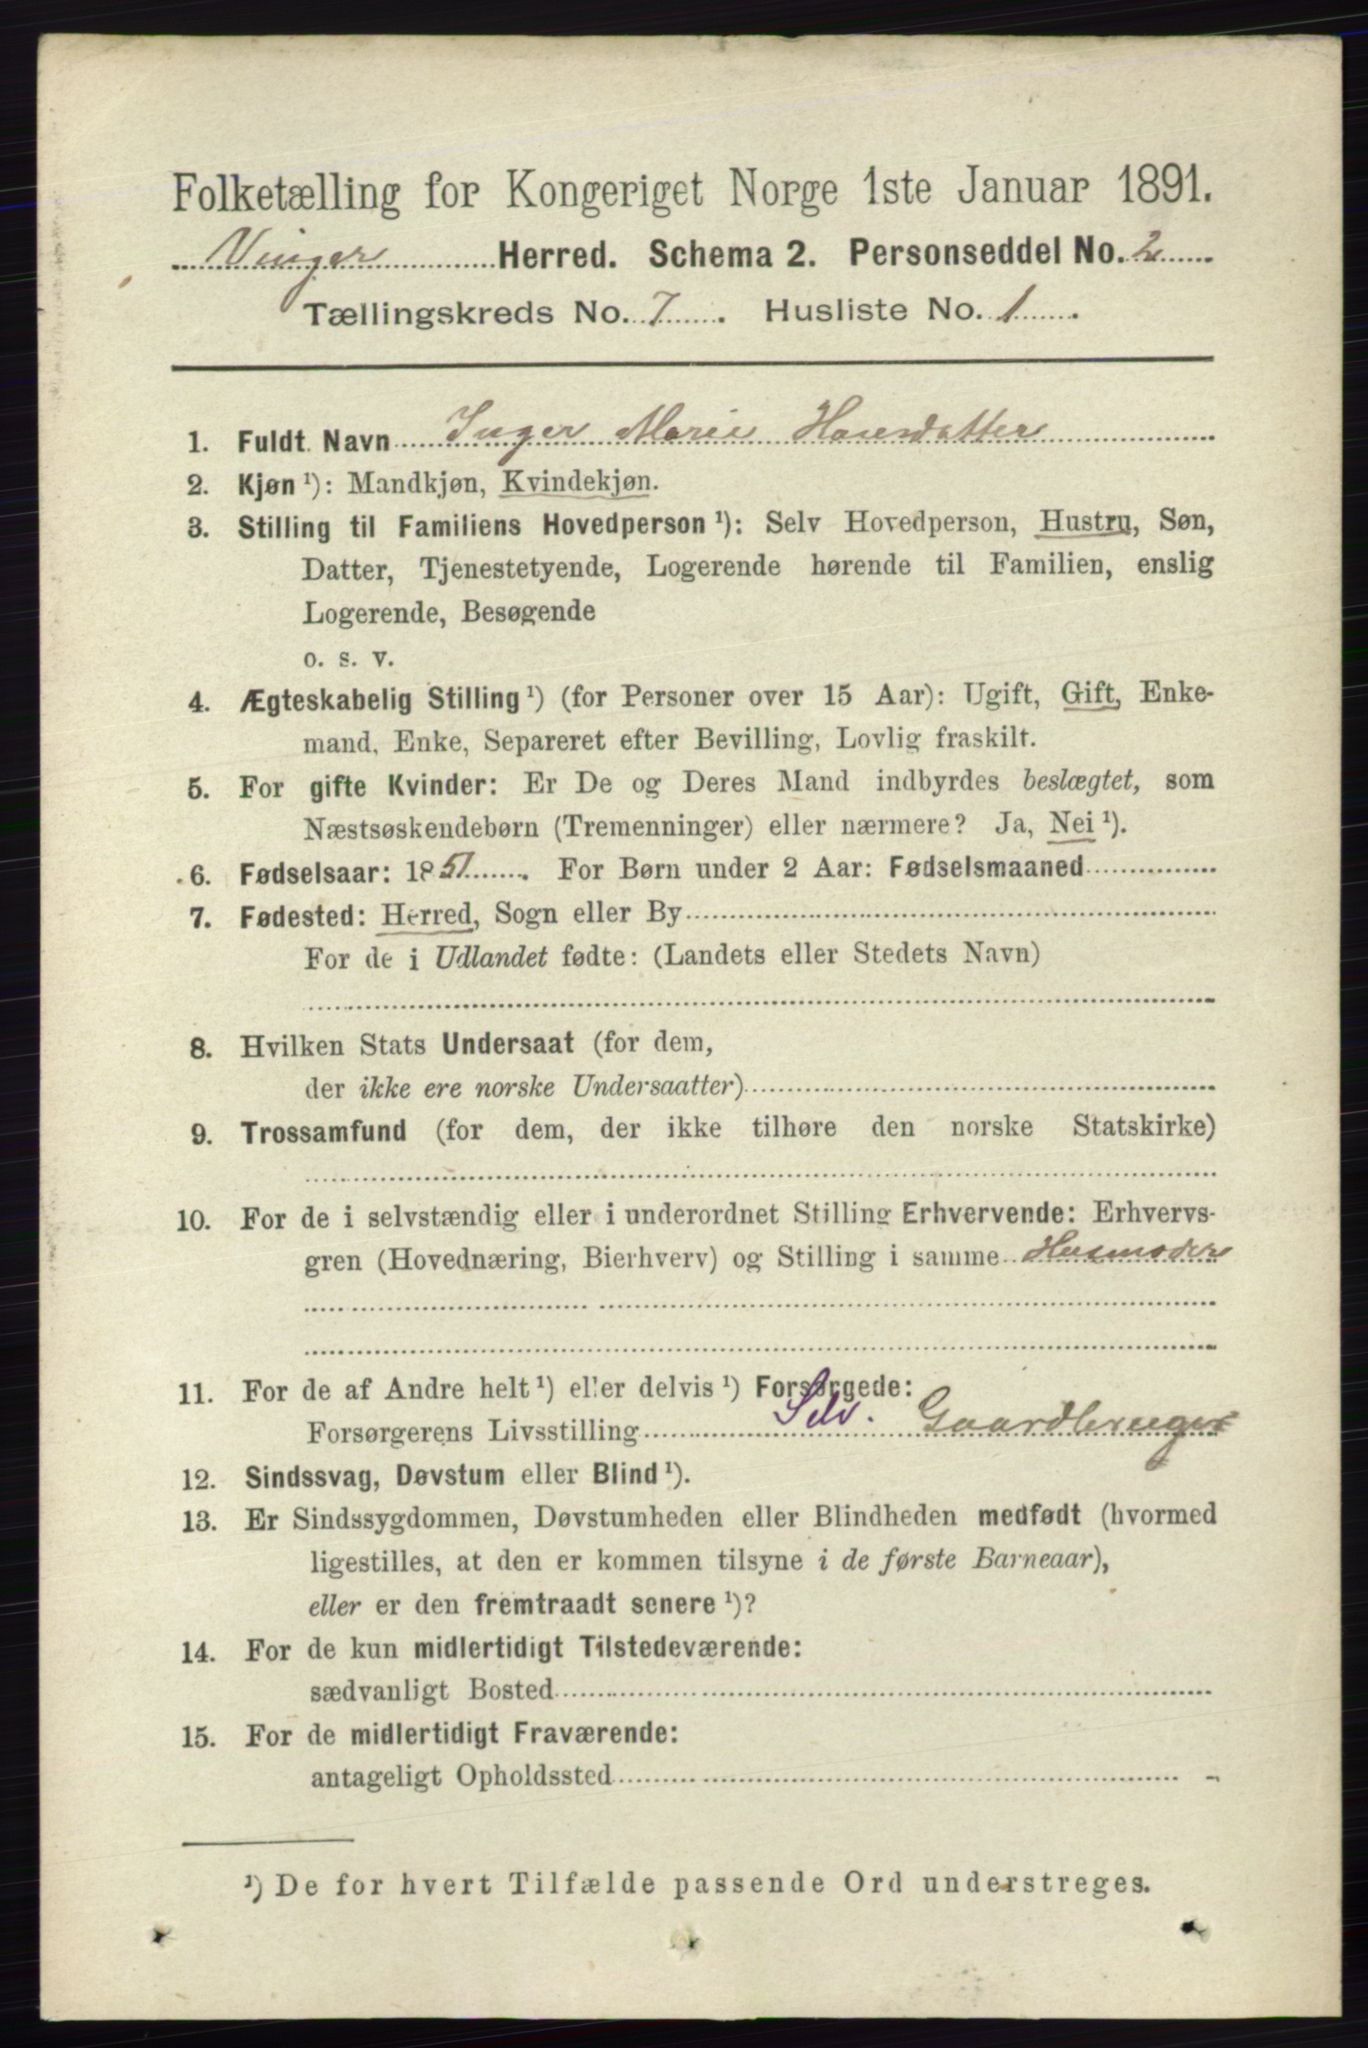 Folketælling for Kongeriget Norge 1ste Januar 1891.
Vinger Herred. Schema 2. Personseddel No. 2
Tællingskreds No. 7. Husliste No. 1.
1. Fuldt Navn Inger Marie Hansdatter
2. Kjøn ¹): Mandkjøn, Kvindekjøn.
3. Stilling til Familiens Hovedperson ¹): Selv Hovedperson, Hustru, Søn,
Datter, Tjenestetyende, Logerende hørende til Familien, enslig
Logerende, Besøgende
o. s. v.
4. Ægteskabelig Stilling ¹) (for Personer over 15 Aar): Ugift, Gift, Enke-
mand, Enke, Separeret efter Bevilling, Lovlig fraskilt.
5. For gifte Kvinder: Er De og Deres Mand indbyrdes beslægtet, som
Næstsøskendebørn (Tremenninger) eller nærmere? Ja, Nei ¹).
6. Fødselsaar: 1851. For Børn under 2 Aar: Fødselsmaaned
7. Fødested: Herred, Sogn eller By
For de i Udlandet fødte: (Landets eller Stedets Navn)
8. Hvilken Stats Undersaat (for dem,
der ikke ere norske Undersaatter)
9. Trossamfund (for dem, der ikke tilhøre den norske Statskirke)
10. For de i selvstændig eller i underordnet Stilling Erhvervende: Erhvervs-
gren (Hovednæring, Bierhverv) og Stilling i samme Husmoder
11. For de af Andre helt ¹) eller delvis ¹) Forsørgede:
Forsørgerens Livsstilling Selv. Gaardbruger
12. Sindssvag, Døvstum eller Blind ¹).
13. Er Sindssygdommen, Døvstumheden eller Blindheden medfødt (hvormed
ligestilles, at den er kommen tilsyne i de første Barneaar),
eller er den fremtraadt senere ¹)?
14. For de kun midlertidigt Tilstedeværende:
sædvanligt Bosted
15. For de midlertidigt Fraværende:
antageligt Opholdssted
¹) De for hvert Tilfælde passende Ord understreges.